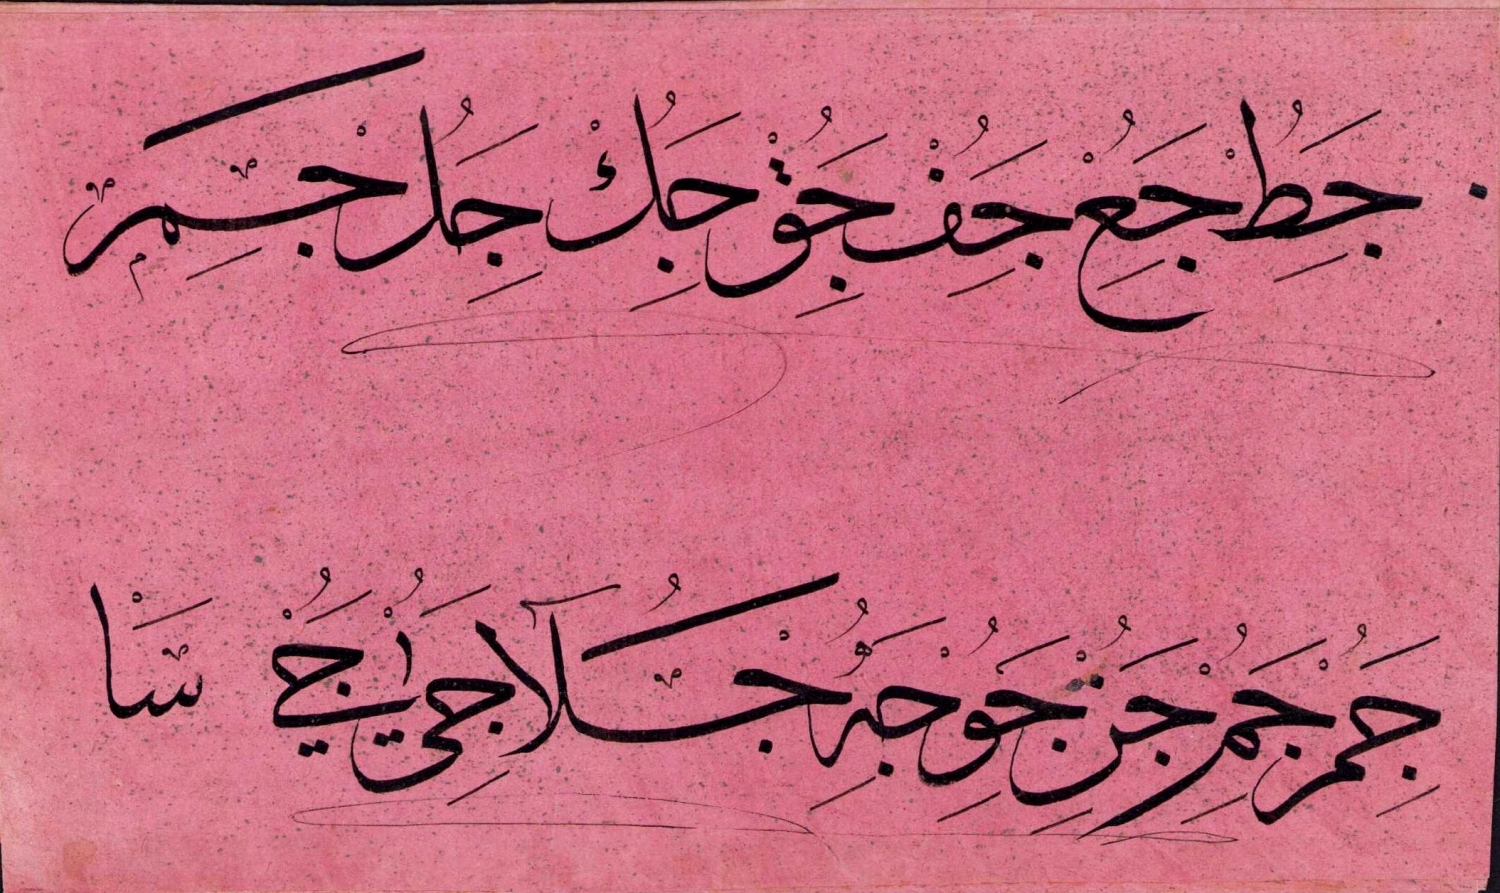 جط جع جف جق جك جل جم
جم جم جن جو جه جلا جى جي سا